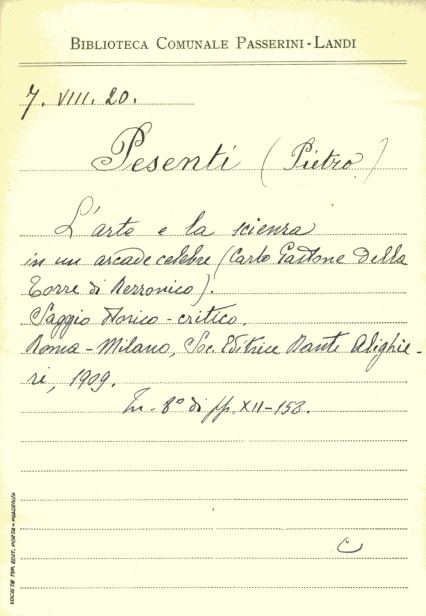 BIBLIOTECA COMUNALE PASSERINI-LANDI
7. VIII. 20.
Pesenti (Pietro)
L'arte e la scienza
in un arcade celebre (Carlo Gastone Della
Torre di Rezzonico).
Saggio storico-critico.
Roma-Milano, Soc. Editrice Dante Alighie-
ri, 1909.
In-8° di pp. XII-158.
C
SOCIETÀ TIP. EDIT. PORTA-PIACENZA